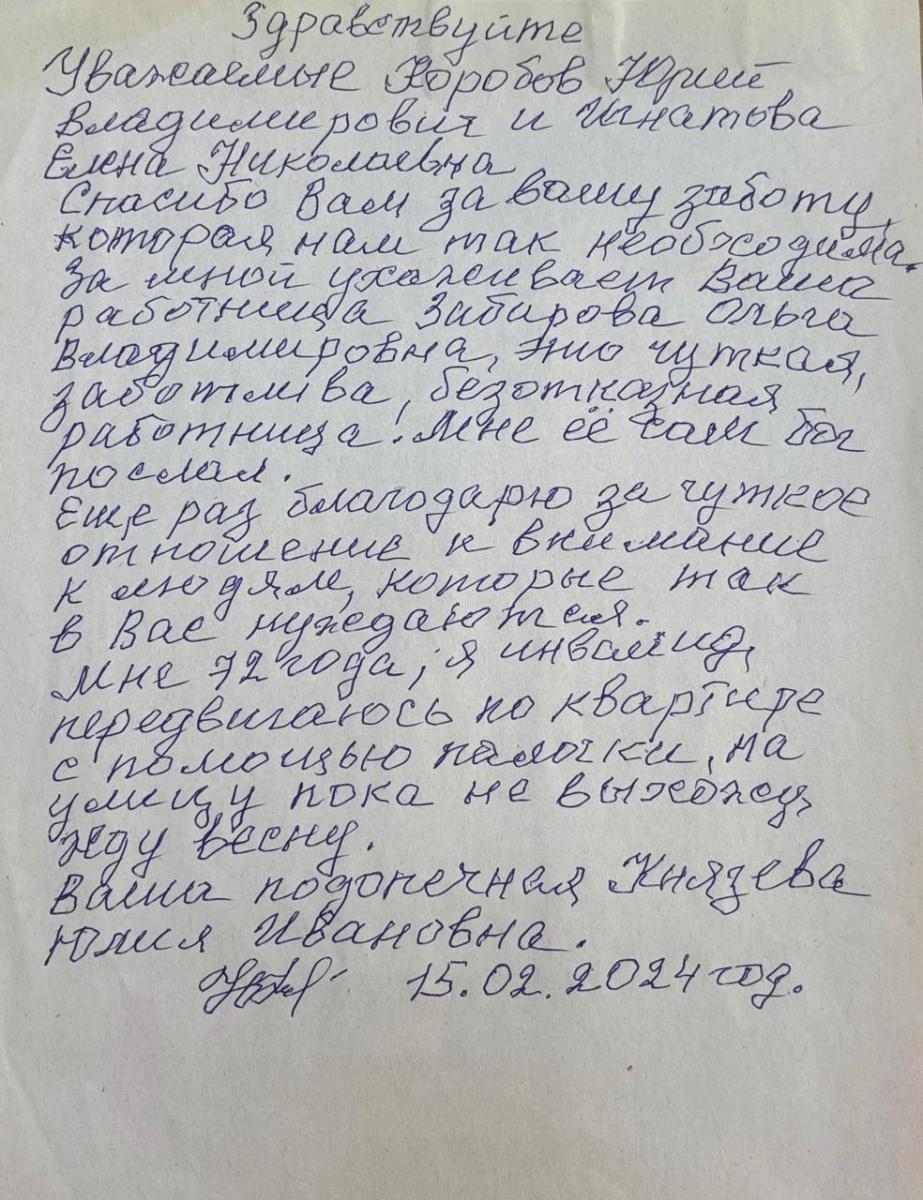 Здравствуйте
Уважаемые Коробов Юрий
Владимирович и Игнатова
Елена Николаевна
Спасибо Вам за вашу заботу,
которая нам так необходима.
За мной ухаживает Ваша
работница Забирова Ольга
Владимировна, это чуткая,
заботлива, безотказная
работница! Мне её сам бог
послал.
Еще раз благодарю за чуткое
отношение и внимание
к людям, которые так
в Вас нуждаются.
Мне 72 года, я инвалид,
передвигаюсь по квартире
с помощью палочки, на
улицу пока не выхожу,
жду весну.
Ваша подопечная Князева
Юлия Ивановна.
15.02.2024 год.